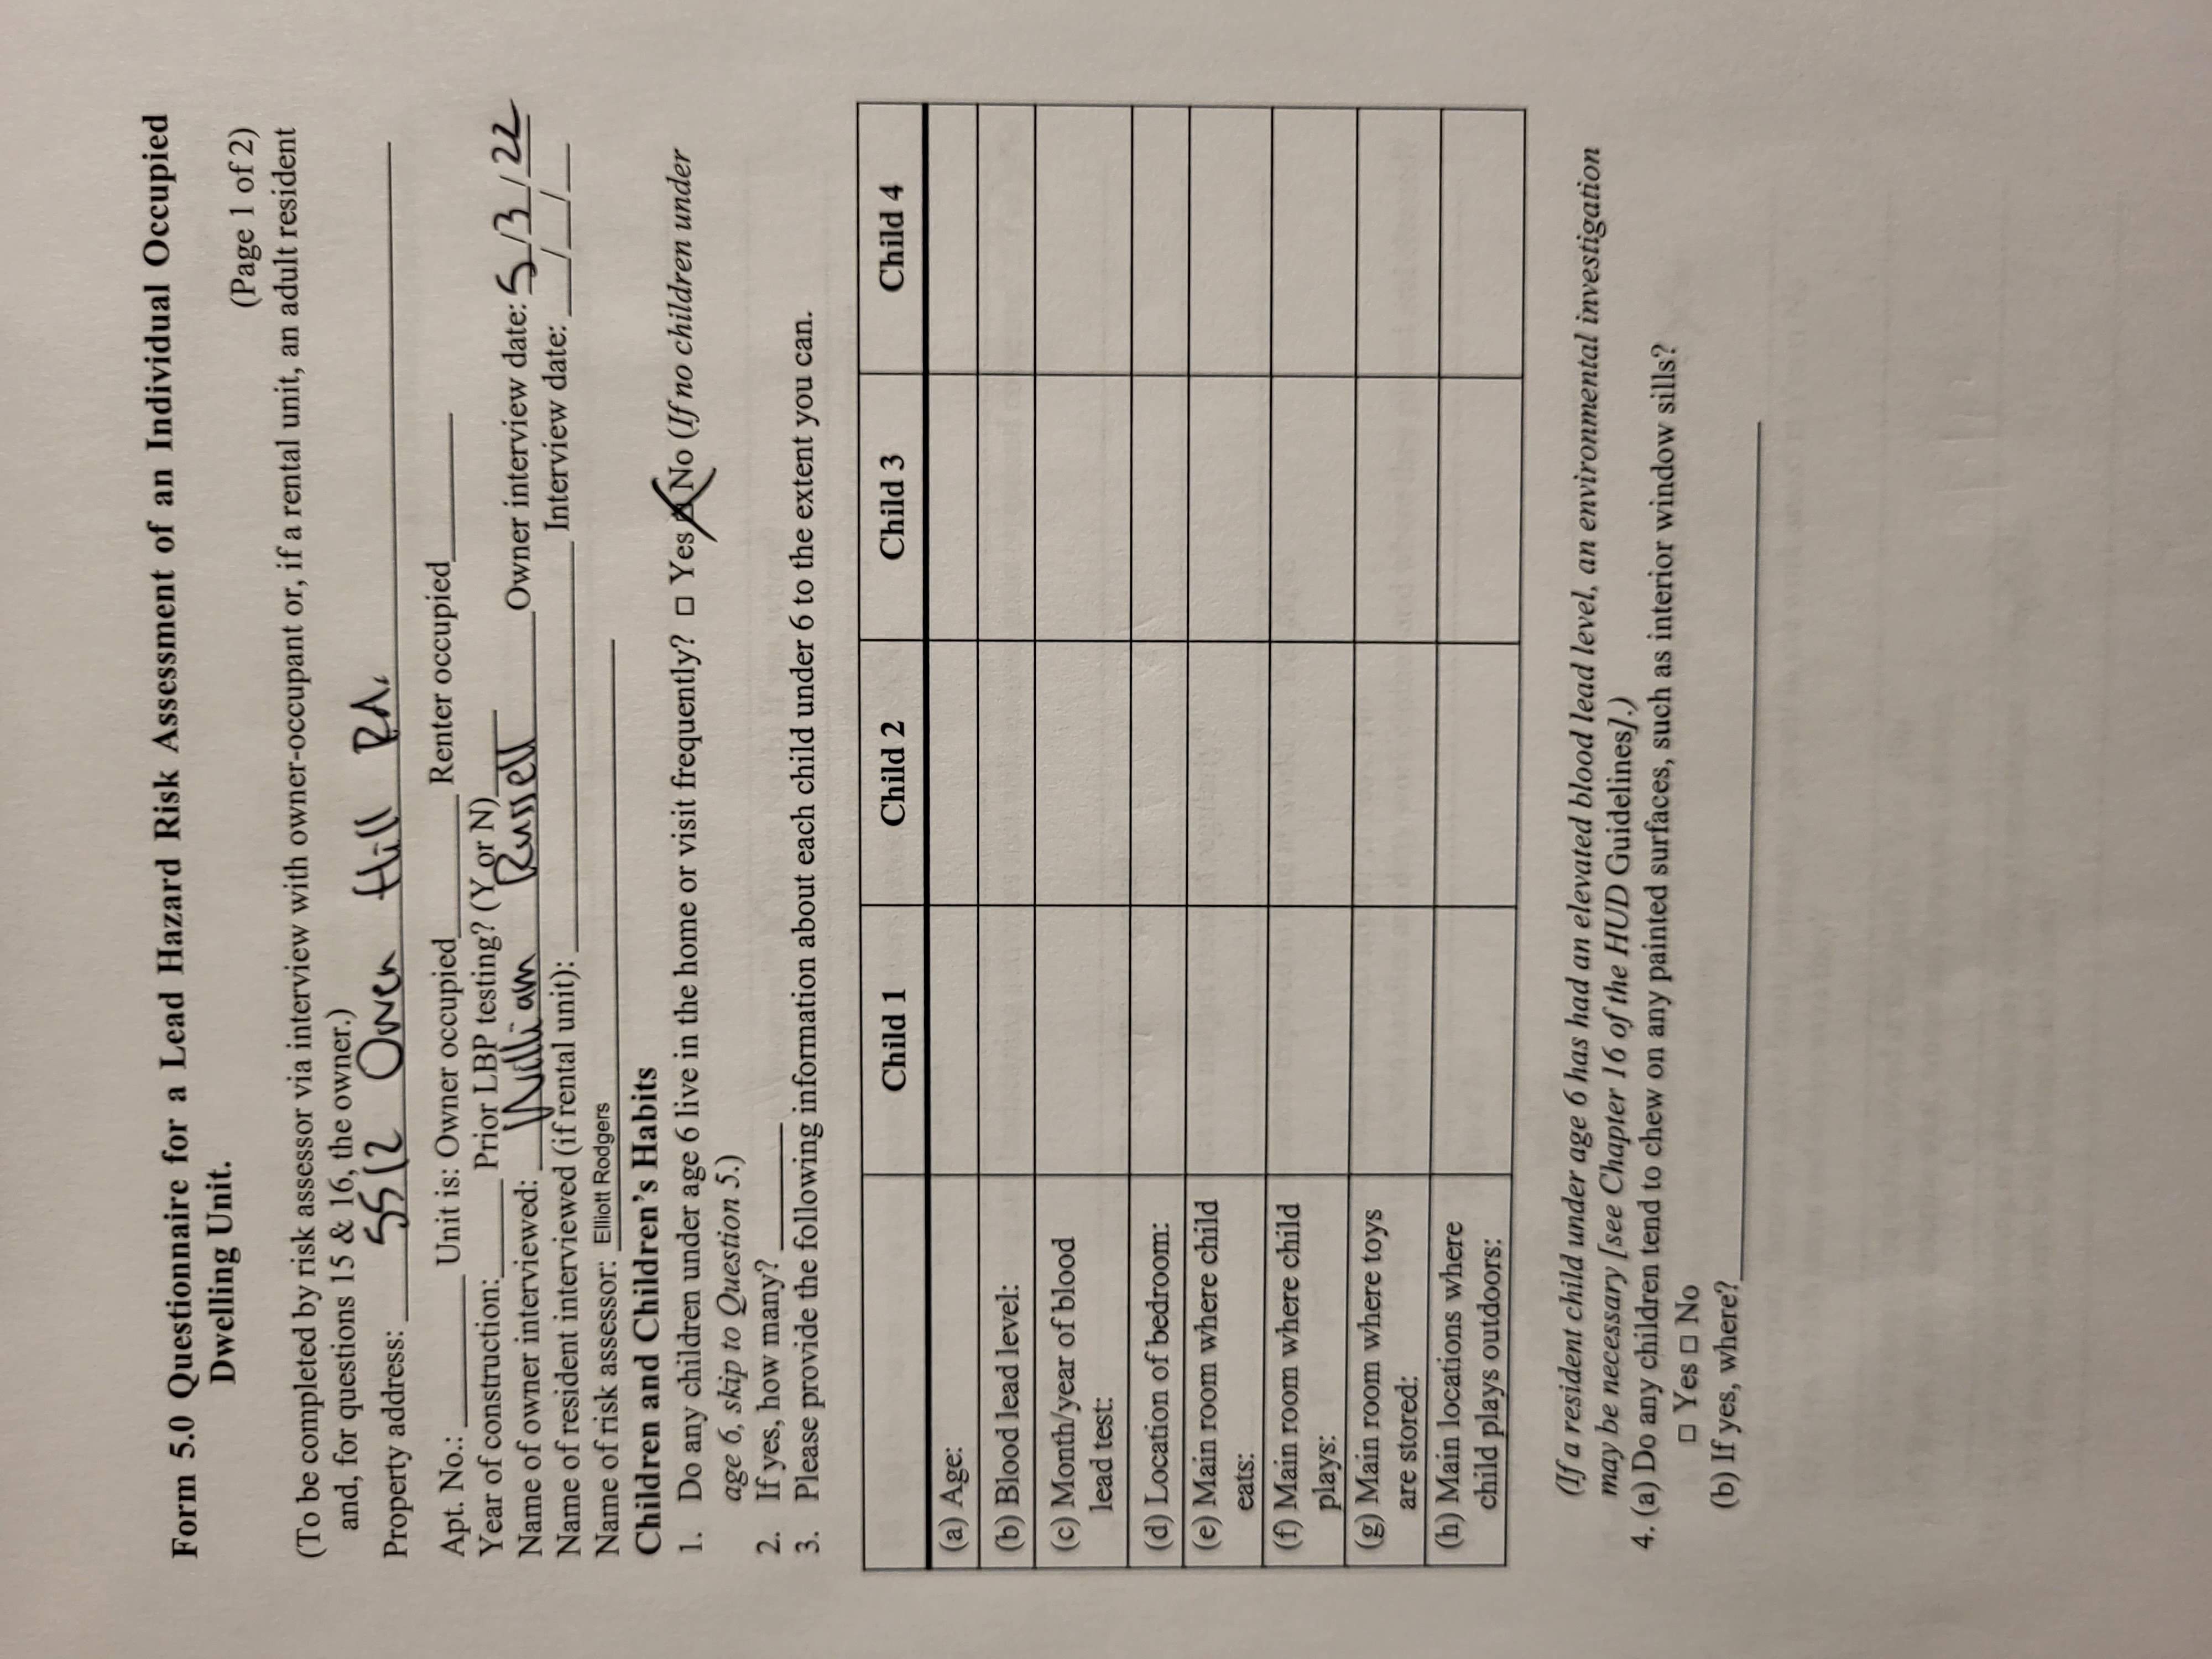 Form 5.0 Questionnaire for a Lead Hazard Risk Assessment of an Individual Occupied
Dwelling Unit.
(Page 1 of 2)
(To be completed by risk assessor via interview with owner-occupant or, if a rental unit, an adult resident
and, for questions 15 & 16, the owner.)
Property address: 5512 Owen Hill Rd.
Apt. No.: ______ Unit is: Owner occupied______ Renter occupied______
Year of construction:______ Prior LBP testing? (Y or N)______
Name of owner interviewed: William Russell Owner interview date: 5/3/22
Name of resident interviewed (if rental unit): ______ Interview date: __/__/__
Name of risk assessor: Elliott Rodgers
Children and Children's Habits
1. Do any children under age 6 live in the home or visit frequently? □ Yes ☒ No (If no children under
age 6, skip to Question 5.)
2. If yes, how many? ______
3. Please provide the following information about each child under 6 to the extent you can.
Child 1 Child 2 Child 3 Child 4
(a) Age:
(b) Blood lead level:
(c) Month/year of blood
lead test:
(d) Location of bedroom:
(e) Main room where child
eats:
(f) Main room where child
plays:
(g) Main room where toys
are stored:
(h) Main locations where
child plays outdoors:
(If a resident child under age 6 has had an elevated blood lead level, an environmental investigation
may be necessary [see Chapter 16 of the HUD Guidelines].)
4. (a) Do any children tend to chew on any painted surfaces, such as interior window sills?
□ Yes □ No
(b) If yes, where?______